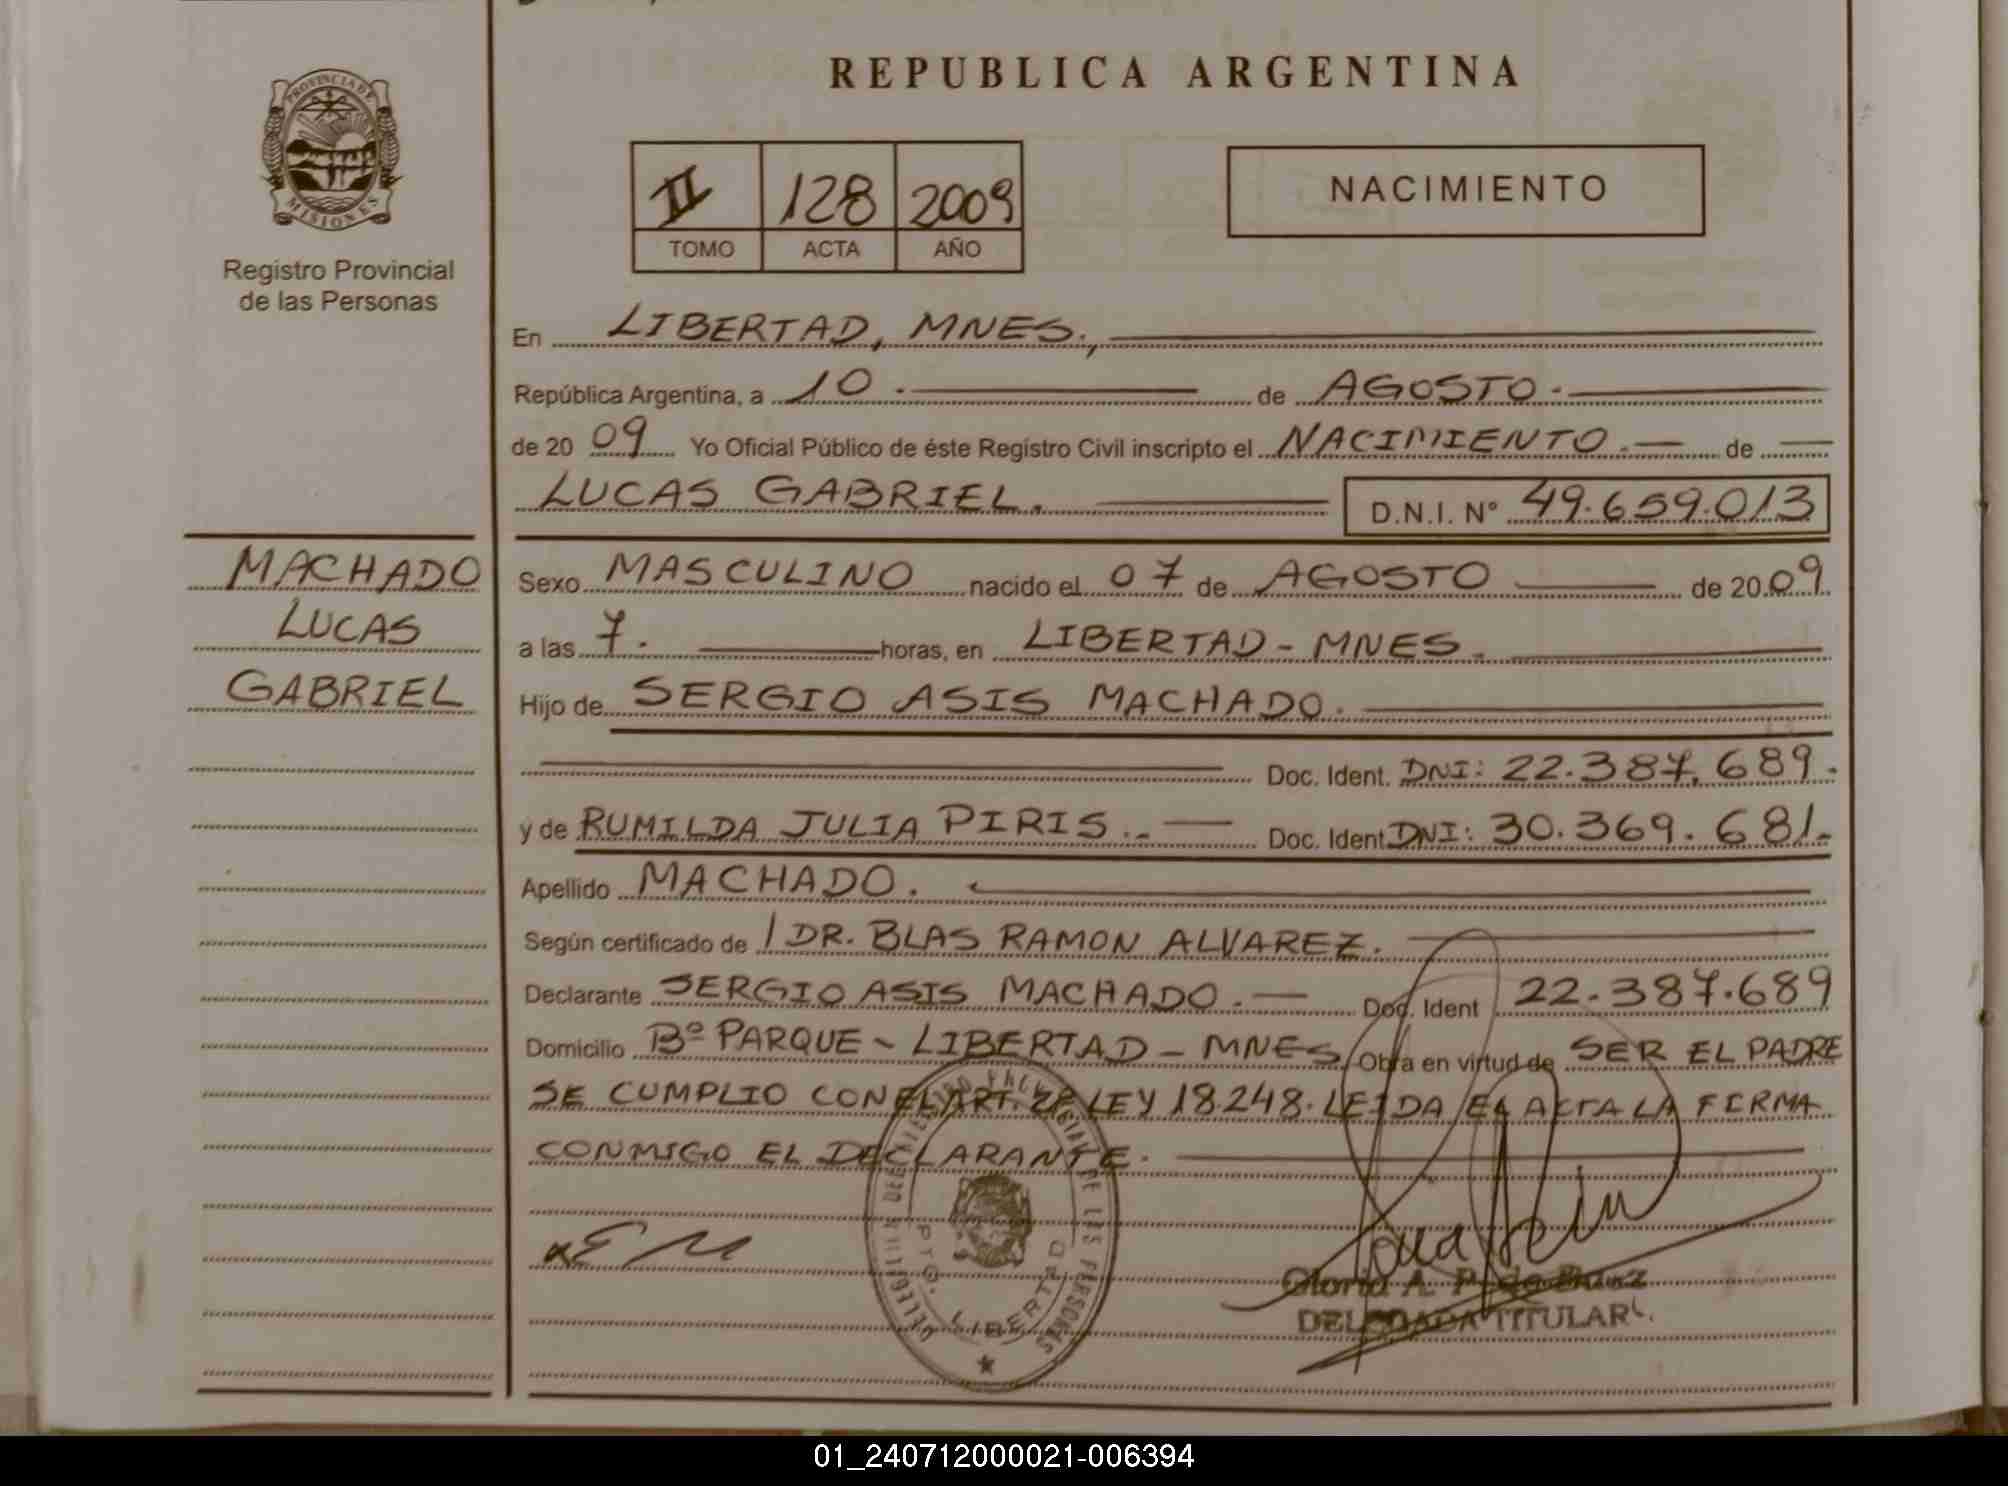 REPUBLICA ARGENTINA
PROVINCIA DE
MISIONES
Registro Provincial
de las Personas
II 128 2009
TOMO ACTA AÑO
NACIMIENTO
En LIBERTAD, MNES.,
República Argentina, a 10. de AGOSTO.
de 20 09 Yo Oficial Público de éste Registro Civil inscripto el NACIMIENTO. de
LUCAS GABRIEL. D.N.I. N° 49.659.013
MACHADO
LUCAS
GABRIEL
Sexo MASCULINO nacido el 07 de AGOSTO de 20.09
a las 7. horas, en LIBERTAD - MNES.
Hijo de SERGIO ASIS MACHADO.
Doc. Ident. DNI: 22.387.689.
y de RUMILDA JULIA PIRIS.. Doc. Ident DNI: 30.369.681.
Apellido MACHADO.
Según certificado de DR. BLAS RAMON ALVAREZ.
Declarante SERGIO ASIS MACHADO. Doc. Ident 22.387.689
Domicilio Bº PARQUE - LIBERTAD - MNES Obra en virtud de SER EL PADRE
SE CUMPLIO CON EL ART. LEY 18.248. LEIDA EL ACTA LA FIRMA
CONMIGO EL DECLARANTE.
DE LAS PERSONAS
PTO. LIBERTAD
Gloria A. P. de
DELEGADA TITULAR
01_240712000021-006394